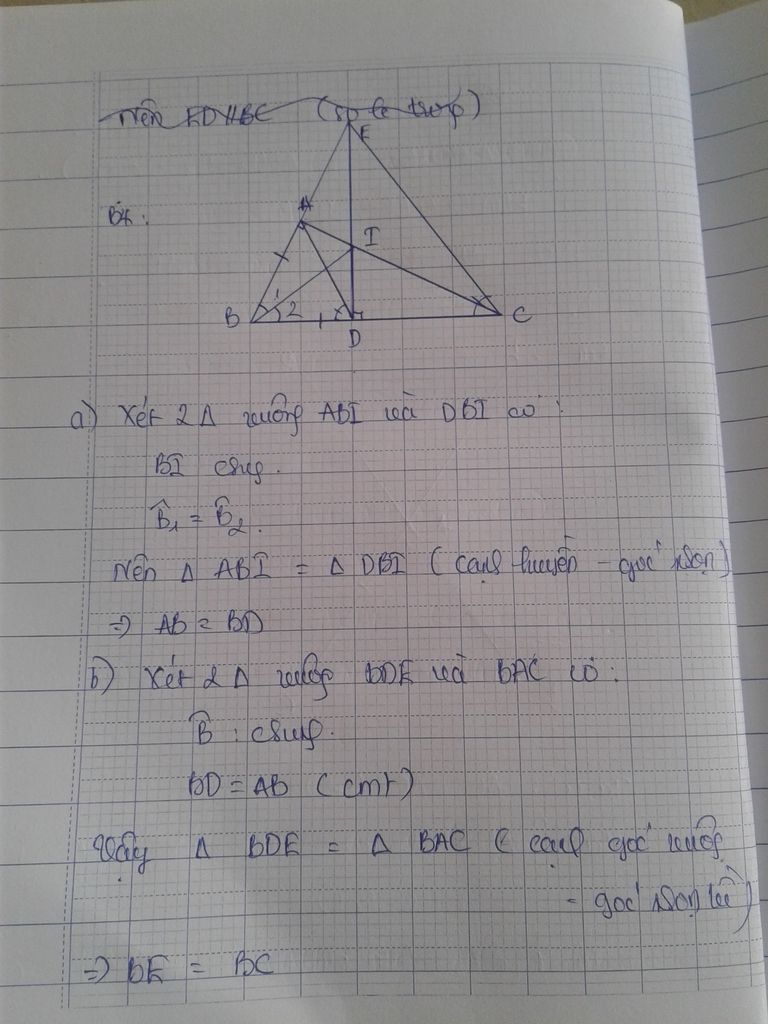 Nên ED//BC (so le trong)
E
A
B4:
I
B 1 2
C
D
a) Xét 2 Δ vuông ABI và DBI có:
BI chung.
B̂1 = B̂2.
Nên Δ ABI = Δ DBI (cạnh huyền - góc nhọn)
=> AB = BD
b) Xét 2 Δ vuông BDE và BAC có:
B̂: chung.
BD = AB (cmt)
Vậy Δ BDE = Δ BAC (cạnh góc vuông
- góc nhọn kề)
=> BE = BC